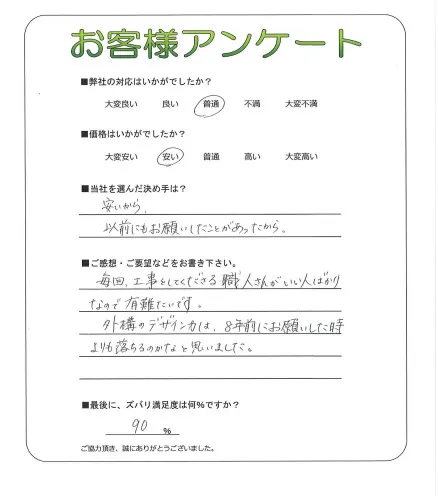 お客様アンケート
■弊社の対応はいかがでしたか?
大変良い 良い 普通 不満 大変不満
■価格はいかがでしたか?
大変安い 安い 普通 高い 大変高い
■当社を選んだ決め手は?
安いから、
以前にもお願いしたことがあったから。
■ご感想・ご要望などをお書き下さい。
毎回、工事をしてくださる職人さんがいい人ばかり
なので有難たいです。
外構のデザイン力は、8年前にお願いした時
よりも落ちるのかなと思いました。
■最後に、ズバリ満足度は何%ですか?
90 %
ご協力頂き、誠にありがとうございました。